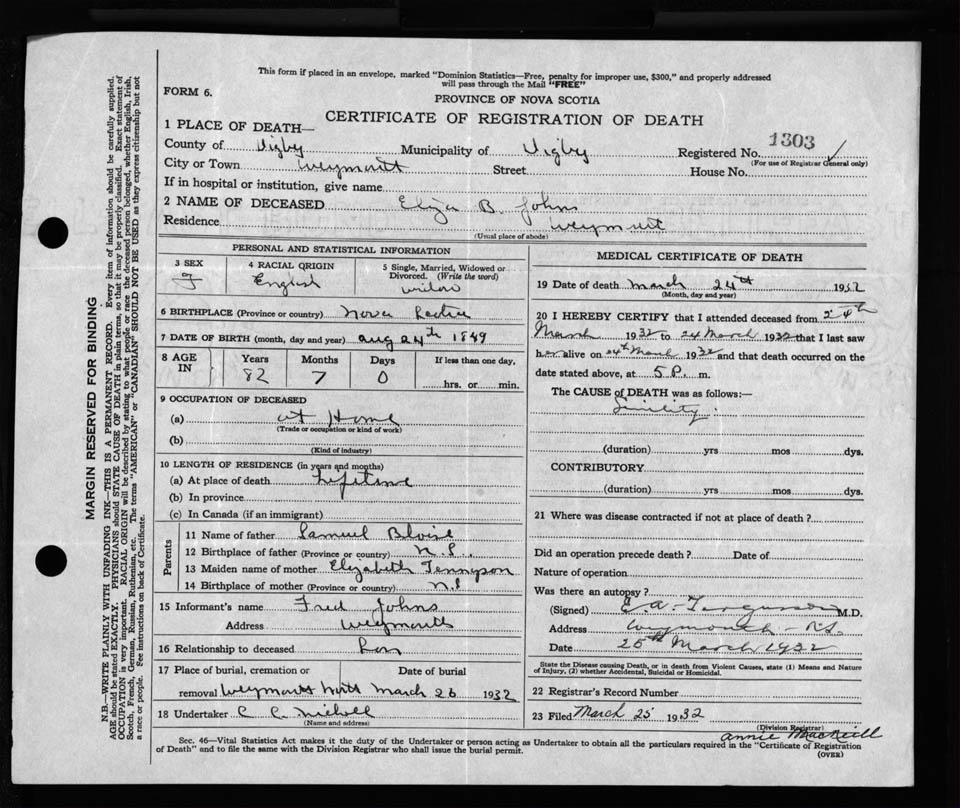 This form if placed in an envelope, marked "Dominion Statistics—Free, penalty for improper use, $300," and properly addressed
will pass through the Mail "FREE"
FORM 6.
PROVINCE OF NOVA SCOTIA
CERTIFICATE OF REGISTRATION OF DEATH
1303
1 PLACE OF DEATH—
County of Digby Municipality of Digby Registered No.
(For use of Registrar General only)
City or Town Weymouth Street House No.
If in hospital or institution, give name
2 NAME OF DECEASED Eliza B. Johns
Residence Weymouth
(Usual place of abode)
PERSONAL AND STATISTICAL INFORMATION
3 SEX 4 RACIAL ORIGIN 5 Single, Married, Widowed or
Divorced. (Write the word)
F English widow
6 BIRTHPLACE (Province or country) Nova Scotia
7 DATE OF BIRTH (month, day and year) Aug 24th 1849
8 AGE IN Years Months Days If less than one day,
82 7 0 hrs. or min.
9 OCCUPATION OF DECEASED
(a) at Home
(Trade or occupation or kind of work)
(b)
(Kind of industry)
10 LENGTH OF RESIDENCE (in years and months)
(a) At place of death Lifetime
(b) In province
(c) In Canada (if an immigrant)
Parents
11 Name of father Samuel
12 Birthplace of father (Province or country) N.S.
13 Maiden name of mother Elizabeth Tennyson
14 Birthplace of mother (Province or country) N.S
15 Informant's name Fred Johns
Address Weymouth
16 Relationship to deceased Son
17 Place of burial, cremation or Date of burial
removal Weymouth North March 26 1932
18 Undertaker C. C. Nichols
(Name and address)
MEDICAL CERTIFICATE OF DEATH
19 Date of death March 24th 1932
(Month, day and year)
20 I HEREBY CERTIFY that I attended deceased from 24th
March 1932 to 24 March 1932 that I last saw
her alive on 24th March 1932 and that death occurred on the
date stated above, at 5 P. m.
The CAUSE of DEATH was as follows:—
Senility.
(duration) yrs mos dys.
CONTRIBUTORY
(duration) yrs mos dys.
21 Where was disease contracted if not at place of death?
Did an operation precede death? Date of
Nature of operation
Was there an autopsy?
(Signed) E. A. Ferguson M.D.
Address Weymouth - N.S.
Date 25th March 1932
State the Disease causing Death, or in death from Violent Causes, state (1) Means and Nature
of Injury, (2) whether Accidental, Suicidal or Homicidal.
22 Registrar's Record Number
23 Filed March 25 1932
(Division Registrar)
Annie MacNeill
Sec. 46—Vital Statistics Act makes it the duty of the Undertaker or person acting as Undertaker to obtain all the particulars required in the "Certificate of Registration
of Death" and to file the same with the Division Registrar who shall issue the burial permit.
(OVER)
MARGIN RESERVED FOR BINDING
N.B.—WRITE PLAINLY WITH UNFADING INK—THIS IS A PERMANENT RECORD. Every item of information should be carefully supplied.
AGE should be stated EXACTLY. PHYSICIANS should STATE CAUSE OF DEATH in plain terms, so that it may be properly classified. Exact statement of
OCCUPATION is very important. RACIAL ORIGIN will be described by stating to what people or race the deceased person belonged, whether English, Irish,
Scotch, French, German, Russian, Ruthenian, etc. The terms "AMERICAN" or "CANADIAN" SHOULD NOT BE USED as they express citizenship but not
a race or people. See instructions on back of Certificate.